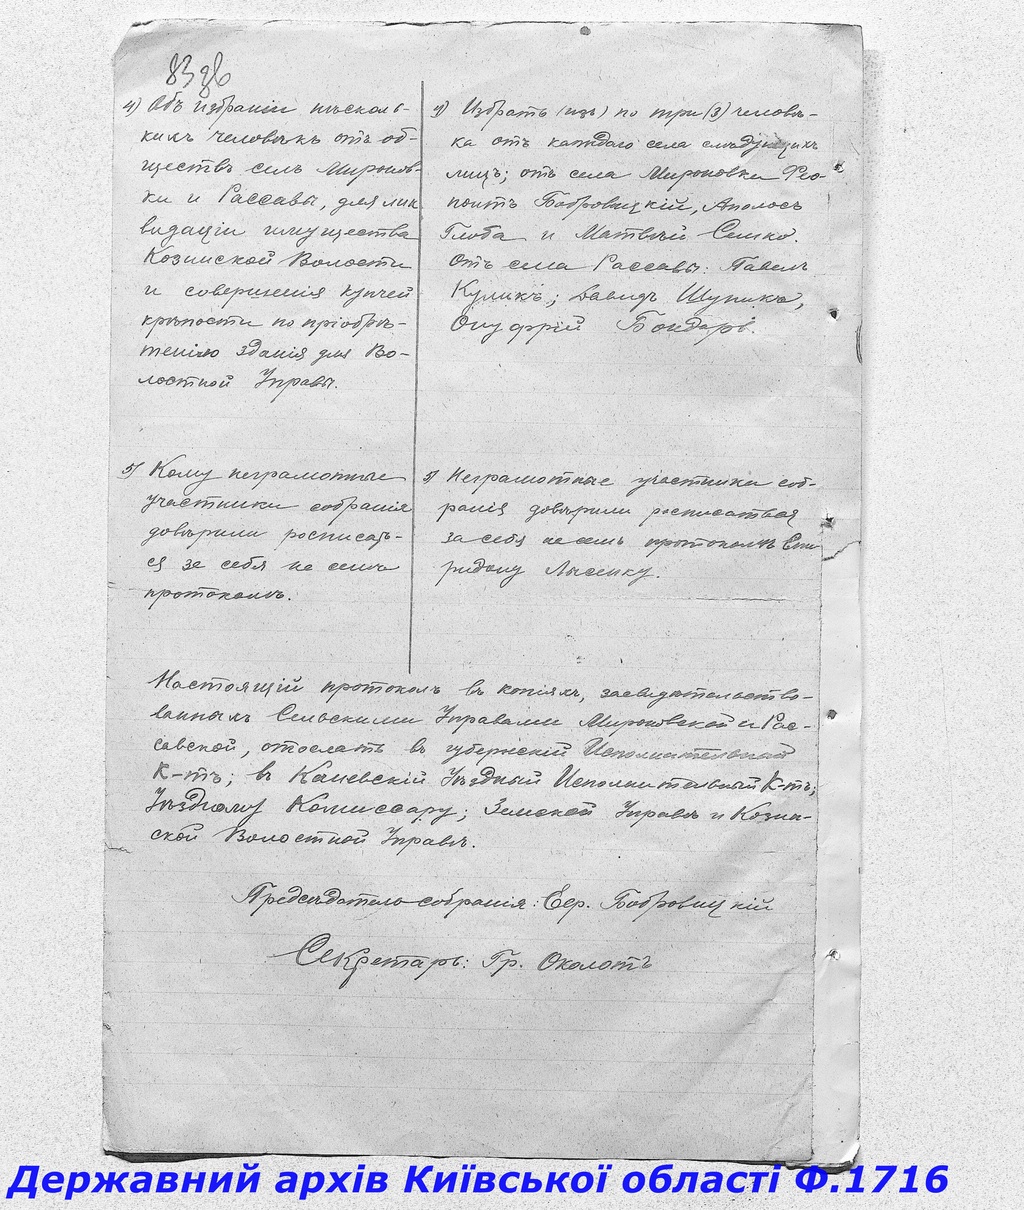 83 зв
4) Объ избраніи нѣсколь-
кихъ человѣкъ отъ об-
ществъ селъ Мироновъ-
ки и Рассавы, для лик
видаціи имущества
Козинской Волости
и совершенія купчей
крѣпости по пріобрѣ-
тенію зданія для Во-
лостной Управы.
4) Избрать (изъ) по три (3) человѣ-
ка отъ каждаго села слѣдующихъ
лицъ; отъ села Мироновки
Бобровицкій, Аполосъ
Глоба и Матвѣй Сешко.
Отъ села Рассавы: Павелъ
Куликъ; Давидъ Шупика,
Онуфрій Бондарь.
5) Кому неграмотные
участники собранія
довѣрили росписать-
ся за себя на семъ
протоколѣ.
5) Неграмотные участники соб-
ранія довѣрили росписаться
за себя на семъ протоколѣ Спи
ридону Лысенку.
Настоящій протоколъ въ копіяхъ, засвидѣтельство-
ванныхъ Сельскими Управами Мироновской и Рас-
савской, отослать въ губернскій Исполнительный
К-тъ; въ Каневскій Уѣздный Исполнительный К-тъ;
Уѣздному Комиссару; Земской Управѣ и Козин-
ской Волостной Управѣ.
Предсѣдатель собранія: Бобровицкій
Секретарь: Гр. Околотъ
Державний архів Київської області Ф.1716